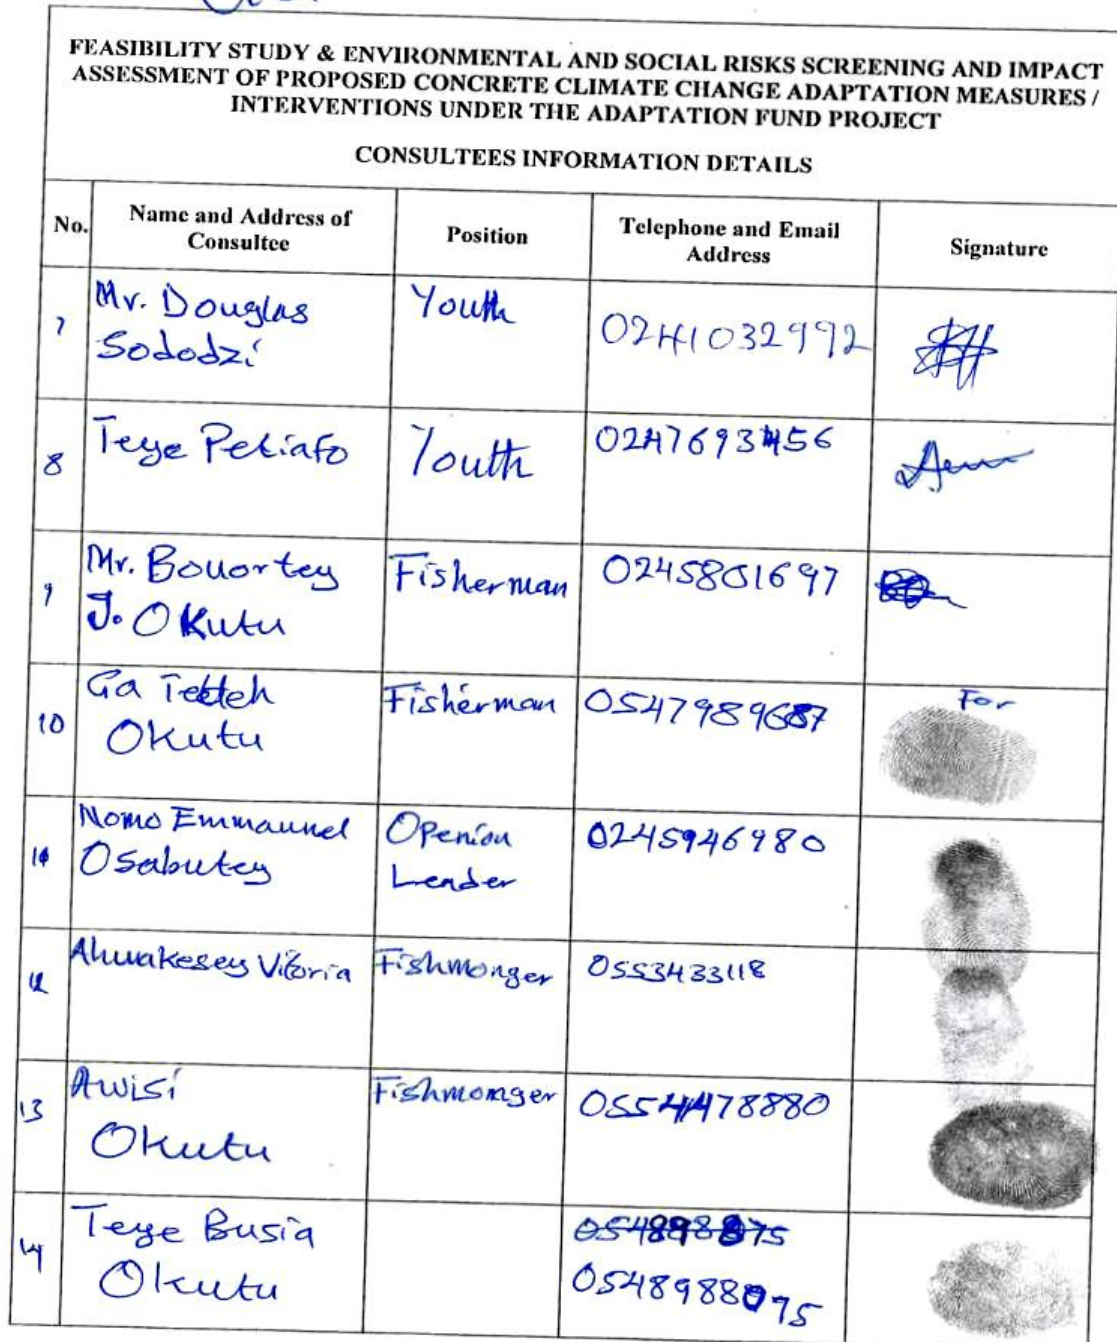 FEASIBILITY STUDY & ENVIRONMENTAL AND SOCIAL RISKS SCREENING AND IMPACT
ASSESSMENT OF PROPOSED CONCRETE CLIMATE CHANGE ADAPTATION MEASURES /
INTERVENTIONS UNDER THE ADAPTATION FUND PROJECT
CONSULTEES INFORMATION DETAILS
No. Name and Address of Consultee Position Telephone and Email Address Signature
7 Mr. Douglas Youth 0241032992
Sododzi
8 Teye Petiafo Youth 0247693456
9 Mr. Bouortey Fisherman 0245801697
J. Okutu
10 Ga Tetteh Fisherman 0547989687 For
Okutu
Nomo Emmaunel Openion 0245946980
Osabutey Leader
12 Ahuakesey Vitoria Fishmonger 0553433118
13 Awisi Fishmonger 0554478880
Okutu
14 Teye Busia
Okutu 0548988075